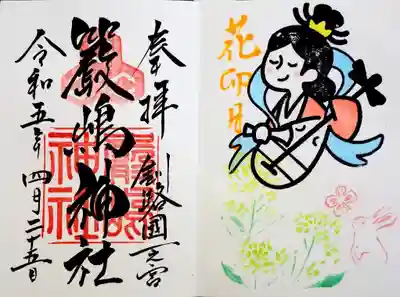 花卯月
奉拝
釧路國一之宮
嚴嶋神社
令和五年四月二十五日